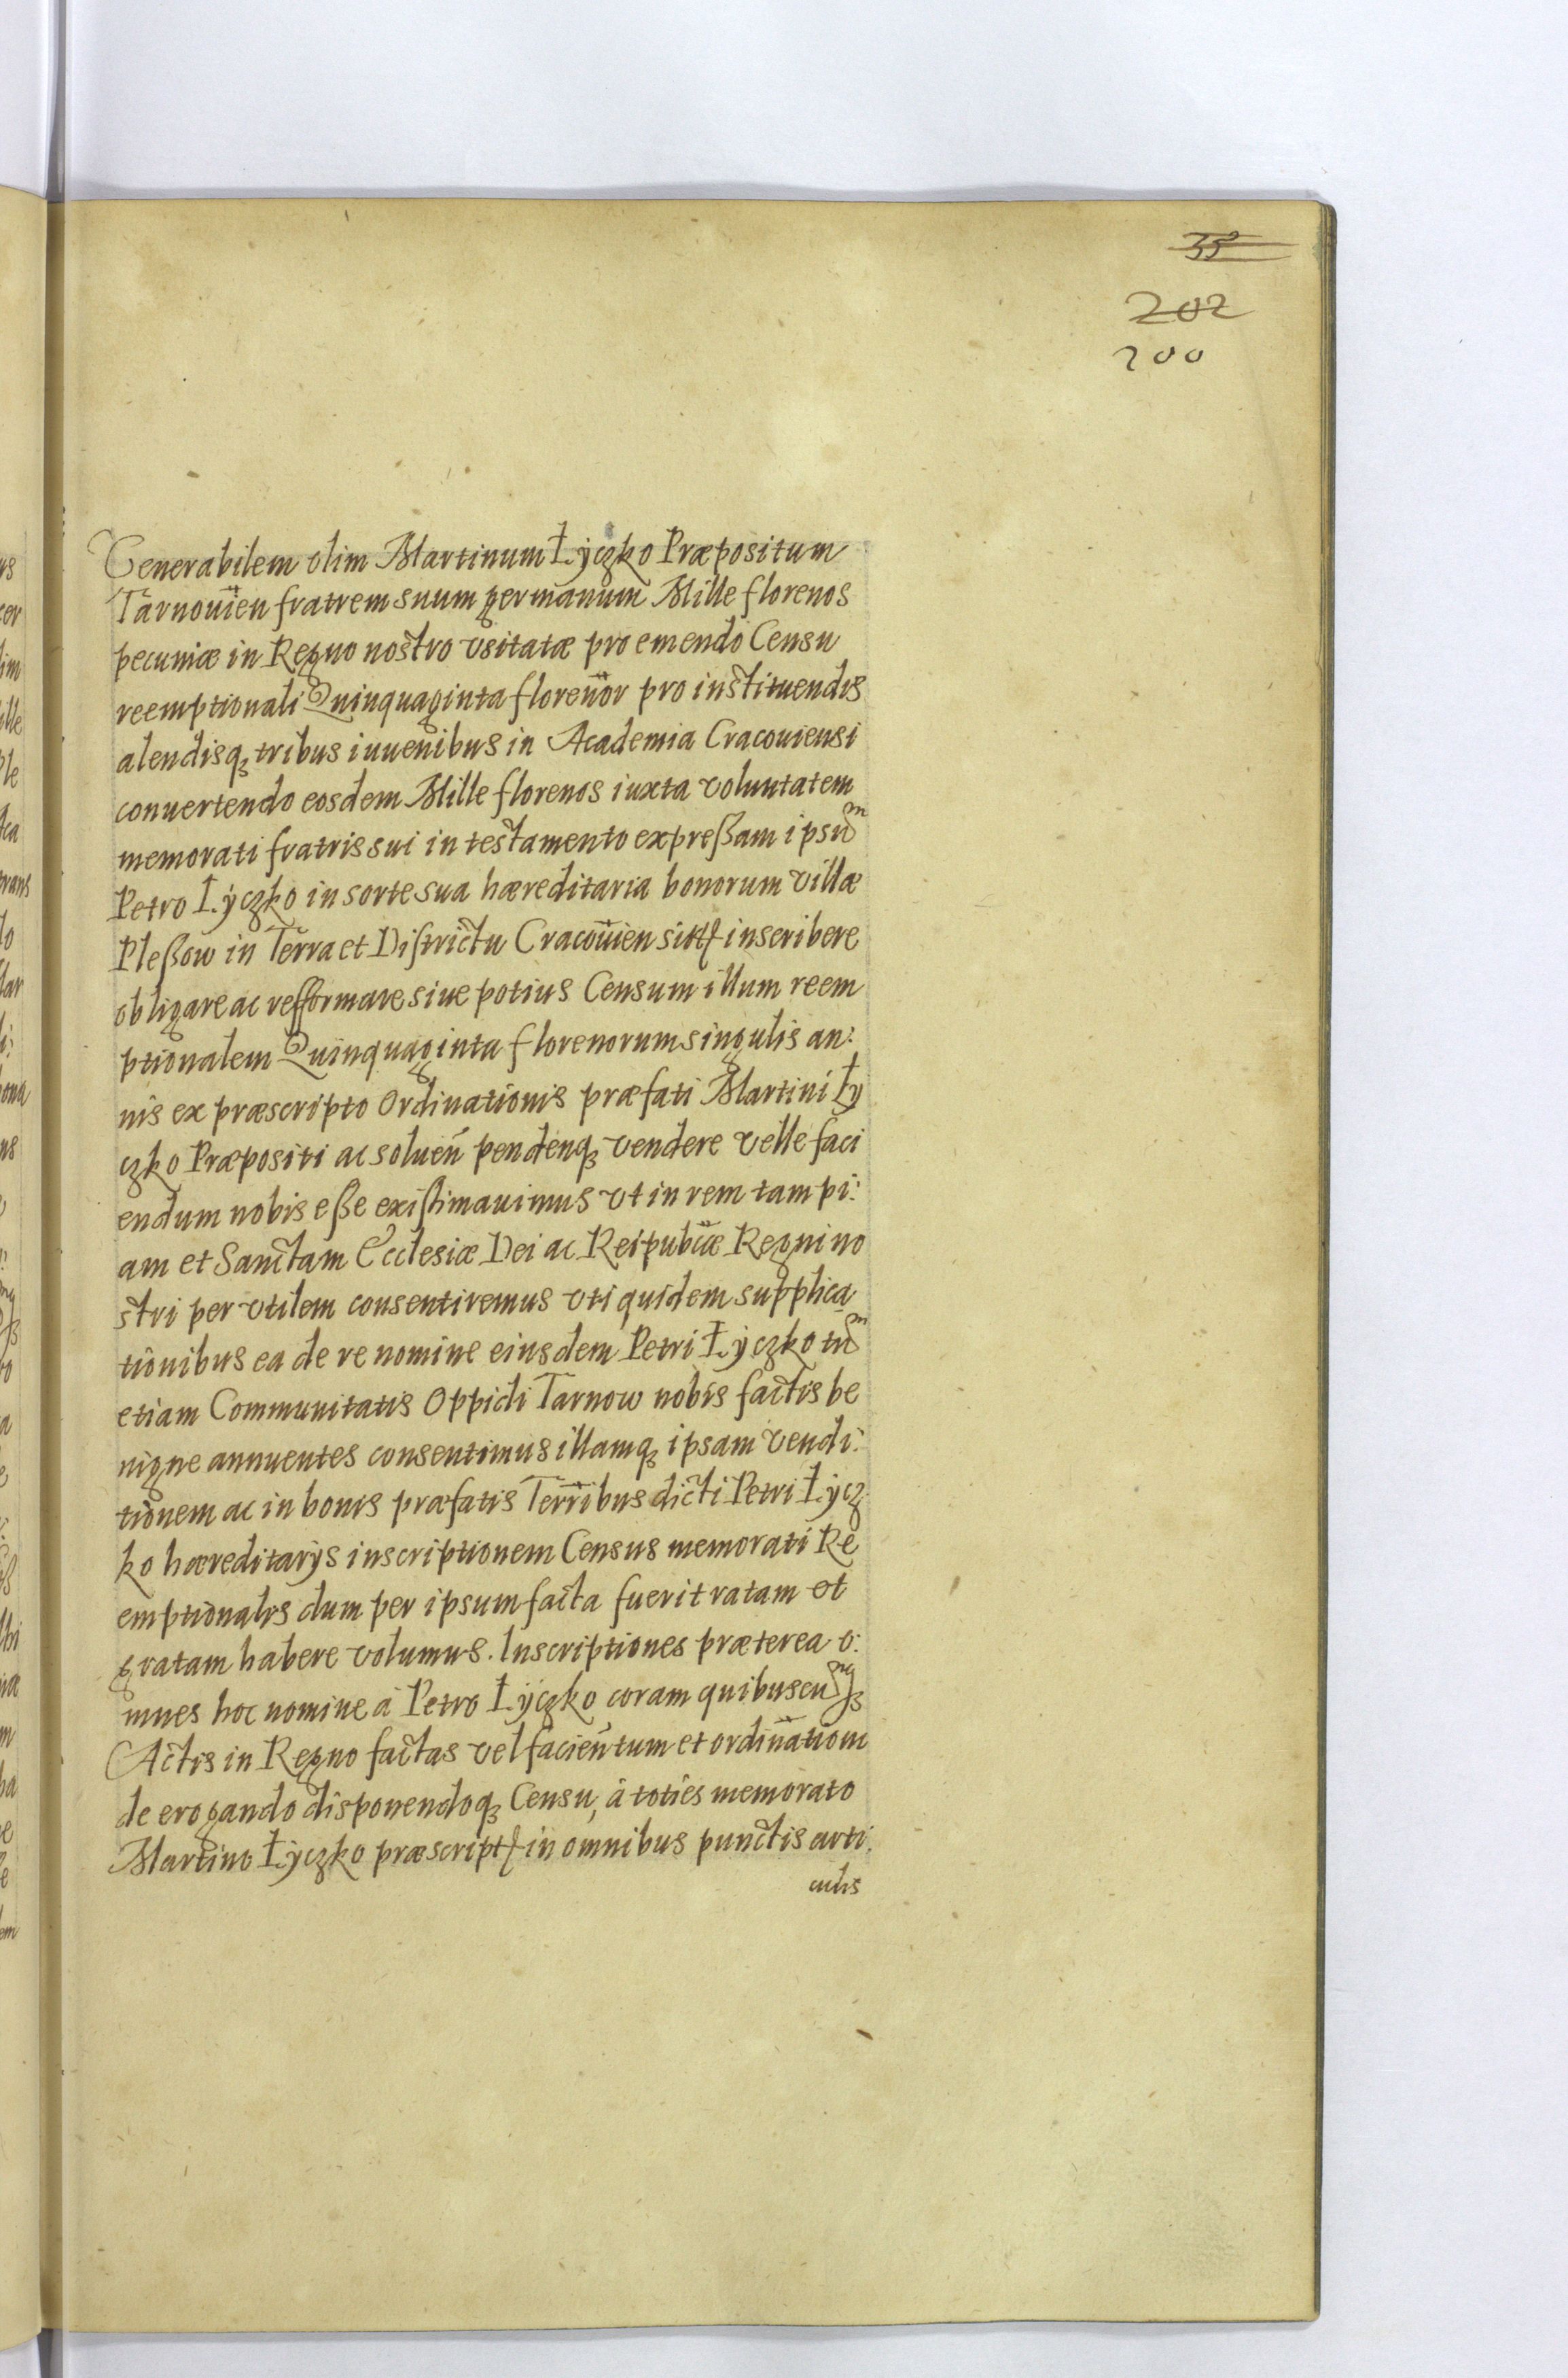 35
202
200
Venerabilem olim Martinum Łyczko Præpositum
Tarnouien̄ fratrem suum germanum Mille florenos
pecuniæ in Regno nostro vsitatæ pro emendo Censu
reemptionali Quinquaginta floren̄or pro instituendis
alendisqꝫ tribus iuuenibus in Academia Cracouiensi
conuertendo eosdem Mille florenos iuxta voluntatem
memorati fratris sui in testamento expreßam ipsum
Petro Łyczko in sorte sua hæreditaria bonorum villæ
Pleßow in Terra et Districtu Cracouien̄ inscribere
obligare ac refformare siue potius Censum illum reem
ptionalem Quinquaginta florenorum singulis an:
nis ex præscripto Ordinationis præfati Martini Ły
czko Præpositi ac soluen̄ pendenqꝫ vendere velle faci
endum nobis eße existimauimus vt in rem tam pi:
am et Sanctam Ecclesiæ Dei ac Reipubcæ Regni no
stri per vtilem consentiremus vti quidem supplica
tionibus ea de re nomine eiusdem Petri Łyczko tum
etiam Communitatis Oppidi Tarnow nobis factis be
nigne annuentes consentimus illamqꝫ ipsam vendi:
tionem ac in bonis præfatis Terribus dicti Petri Łycz
ko hæreditarÿs inscriptionem Census memorati Re
emptionalis dum per ipsum facta fuerit ratam et
gratam habere volumus. Inscriptiones præterea o:
mnes hoc nomine à Petro Łyczko coram quibuscumqꝫ
Actis in Regno factas vel facien̄ tum et ordin̄ationem
de erogando disponendoqꝫ Censu, à toties memorato
Martino Łyczko præscript in omnibus punctis arti:
culis